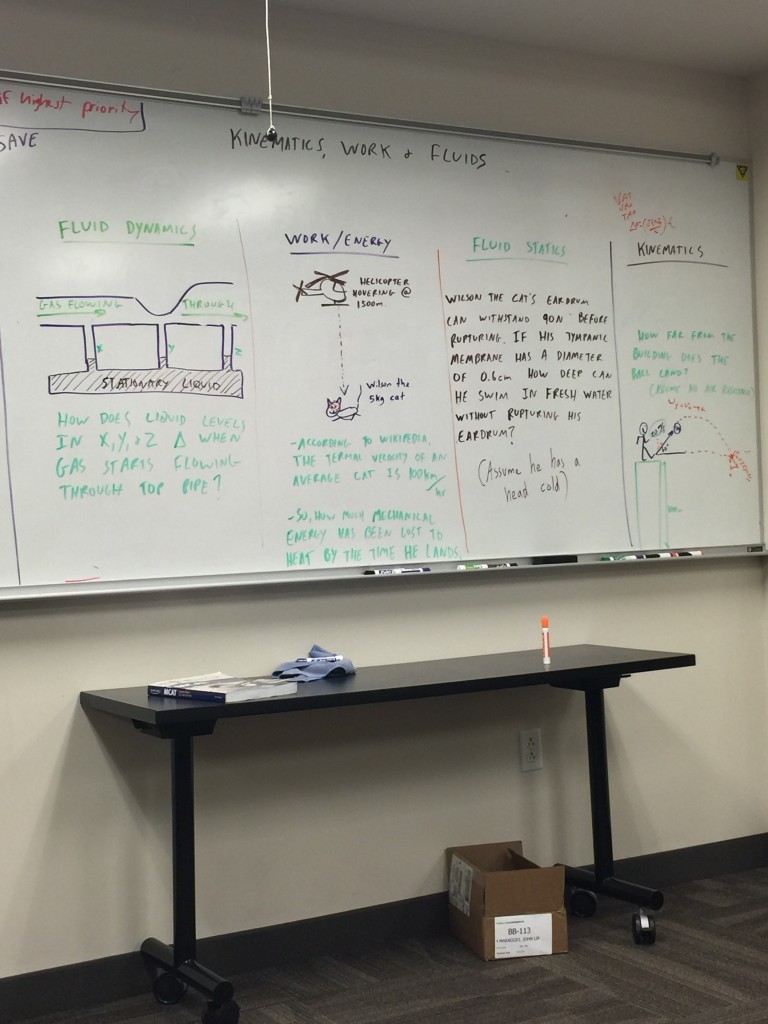 highest priority
SAVE
KINEMATICS, WORK & FLUIDS
FLUID DYNAMICS
GAS FLOWING THROUGH
X Y Z
STATIONARY LIQUID
HOW DOES LIQUID LEVELS
IN X, Y, & Z Δ WHEN
GAS STARTS FLOWING
THROUGH TOP PIPE?
WORK/ENERGY
HELICOPTER
HOVERING @
1500m.
Wilson the
5kg cat
-ACCORDING TO WIKIPEDIA,
THE TERMAL VELOCITY OF AN
AVERAGE CAT IS 100km/hr
-SO, HOW MUCH MECHANICAL
ENERGY HAS BEEN LOST TO
HEAT BY THE TIME HE LANDS.
FLUID STATICS
WILSON THE CAT'S EARDRUM
CAN WITHSTAND 90N BEFORE
RUPTURING. IF HIS TYMPANIC
MEMBRANE HAS A DIAMETER
OF 0.6cm HOW DEEP CAN
HE SWIM IN FRESH WATER
WITHOUT RUPTURING HIS
EARDRUM?
(Assume he has a
head cold)
KINEMATICS
HOW FAR FROM THE
BUILDING DOES THE
BALL LAND?
(ASSUME NO AIR RESISTANCE)
MCAT
BB-113